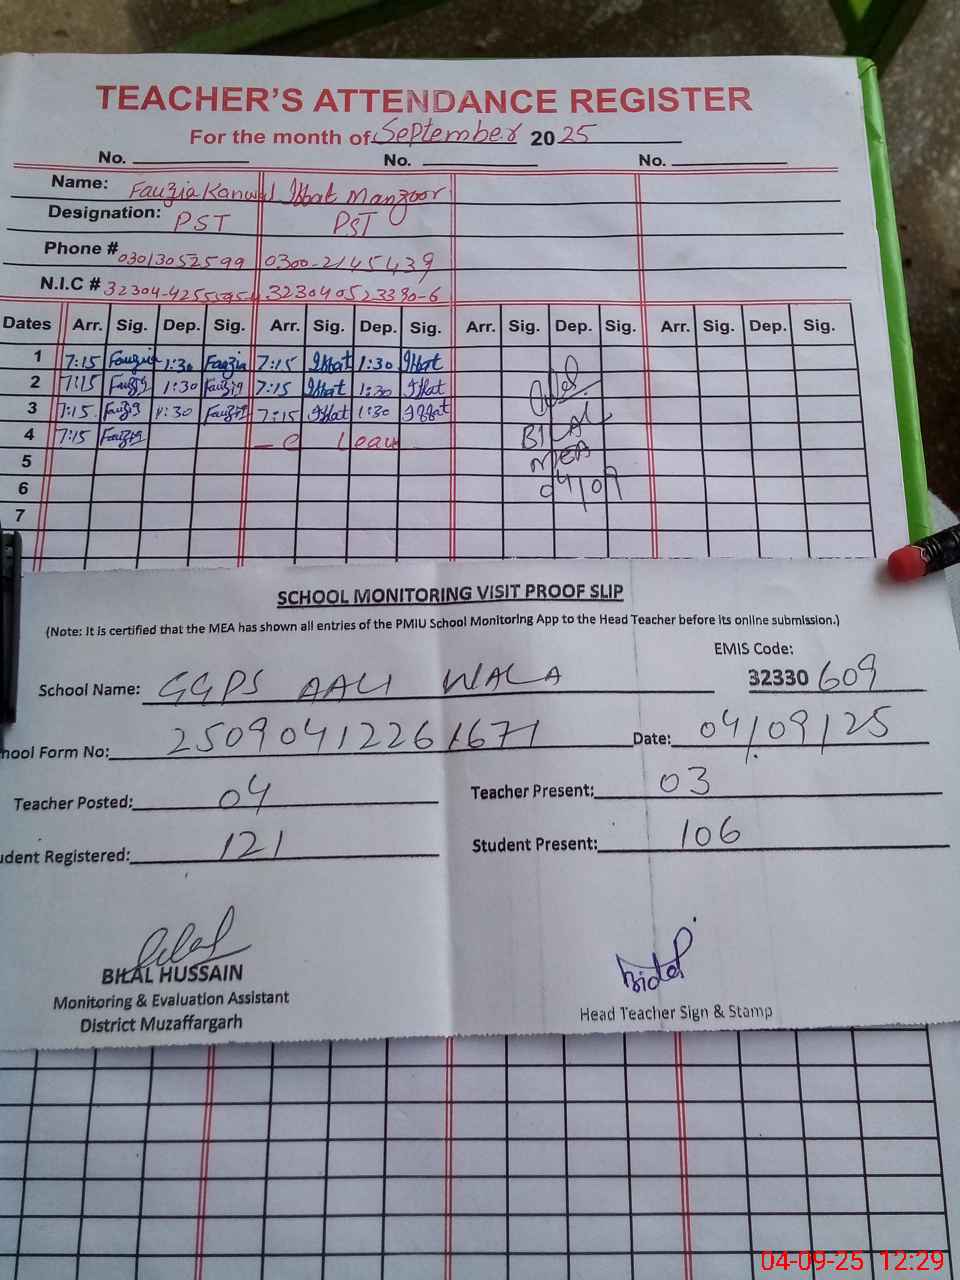 TEACHER'S ATTENDANCE REGISTER
For the month of September 2025
No. No. No.
Name: Fauzia Kanwal Iffat Manzoor
Designation: PST PST
Phone # 03013052599 0300-2145439
N.I.C # 32304-4255595-4 323040523390-6
Dates Arr. Sig. Dep. Sig. Arr. Sig. Dep. Sig. Arr. Sig. Dep. Sig. Arr. Sig. Dep. Sig.
1 7:15 Fauzia 1:30 Fauzia 7:15 Iffat 1:30 Iffat
2 7:15 Fauzia 1:30 Fauzia 7:15 Iffat 1:30 Iffat
3 7:15 Fauzia 1:30 Fauzia 7:15 Iffat 1:30 Iffat
4 7:15 Fauzia - C Leave -
BILAL
5
MEA
6
04/09
7
SCHOOL MONITORING VISIT PROOF SLIP
(Note: It is certified that the MEA has shown all entries of the PMIU School Monitoring App to the Head Teacher before its online submission.)
EMIS Code:
School Name: GGPS AALI WALA 32330 609
hool Form No: 25090412261671 Date: 04/09/25
Teacher Posted: 04 Teacher Present: 03
udent Registered: 121 Student Present: 106
Bilal
BILAL HUSSAIN
Monitoring & Evaluation Assistant
District Muzaffargarh
Head Teacher Sign & Stamp
04-09-25 12:29